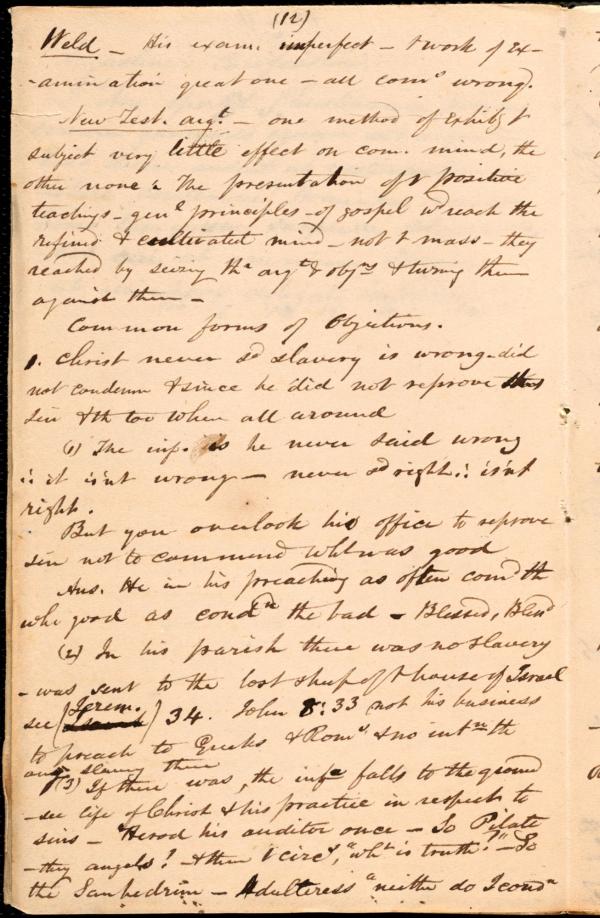 (12)
Weld - His exam. imperfect - & work of ex-
-amination great one - all coms wrong.
New Test. argt. - one method of exhibg t
subject very little effect on com. mind, the
other none: The presentation of t positive
teachings - genl principles - of gospel wd reach the
refined & cultivated mind - not t mass - they
reached by seizing thr argts & objns & turng them
against them -
Common forms of Objections.
1. Christ never sd slavery is wrong - did
not condemn & since he did not reprove
sin & th too when all around
(1) The inf. is he never said wrong
∴ it isn't wrong - never sd right ∴ isn't
right.
But you overlook his office to reprove
sin not to commend wht was good
Ans. He in his preaching as often comd th
whc good as condn the bad - Blessed, Blesd
(2) In his parish there was no slavery
- was sent to the lost sheep of t house of Israel
see (Jerem.) 34. John 8:33 not his business
to preach to Greeks & Roms, & no intn th
any slavery there
(3) If there was, the infe falls to the ground
- see life of Christ & his practice in respect to
sins - Herod his auditor once - So Pilate
- they angels! & then t circs, "wht is truth?" - So
the Sanhedrim - Adulteress "neither do I condn